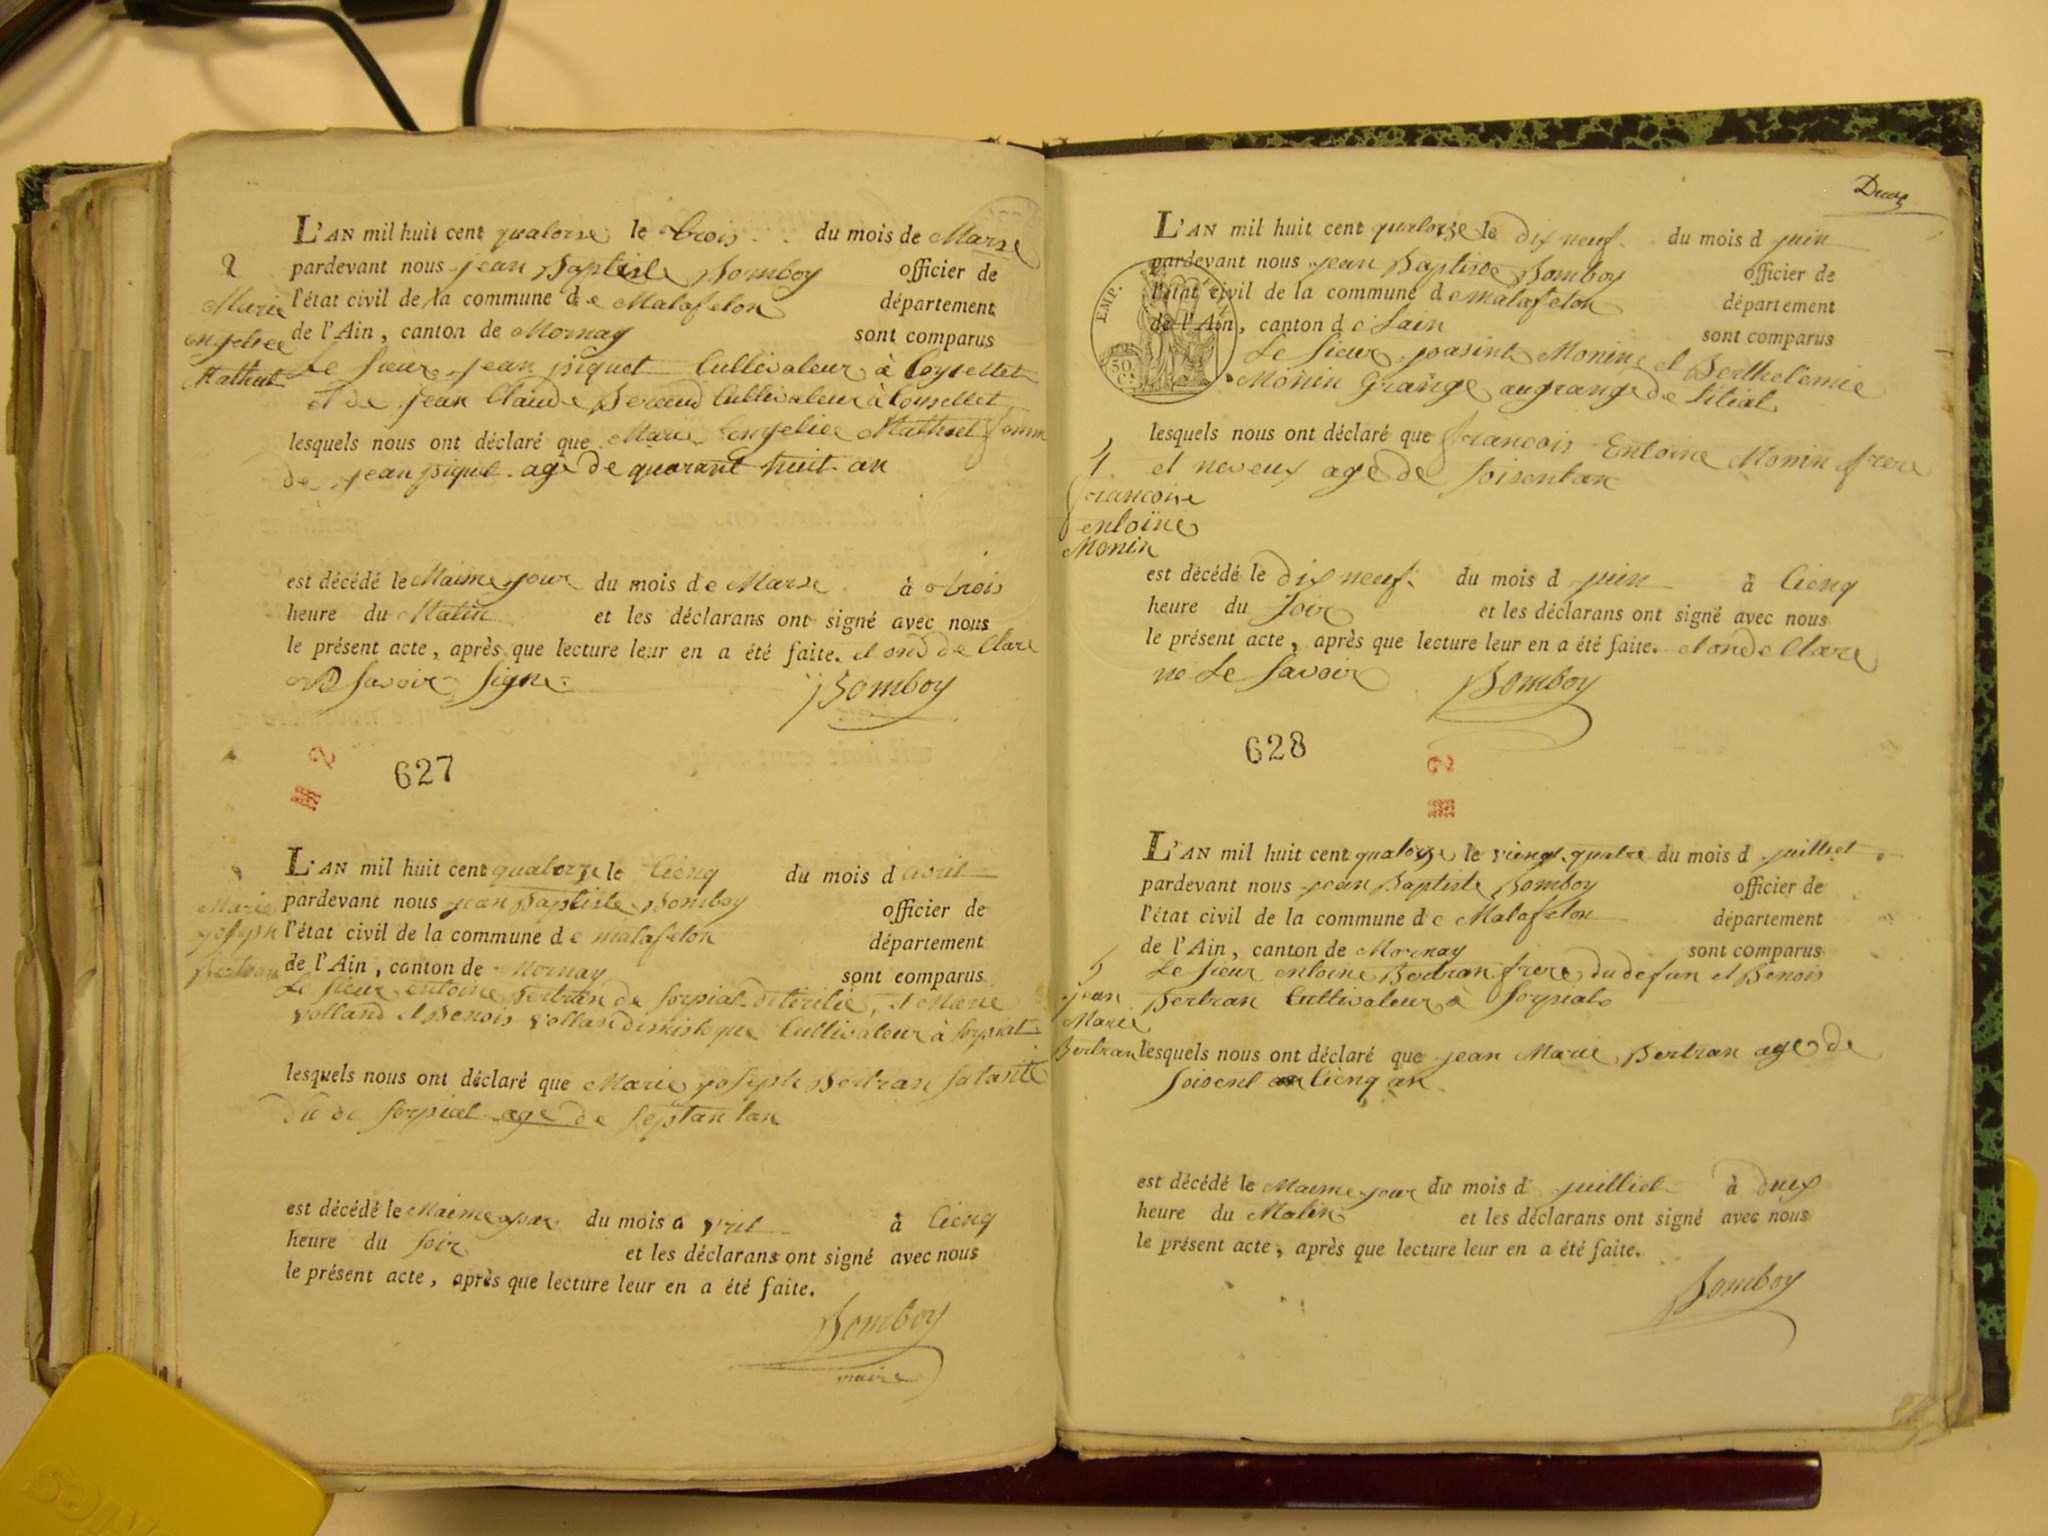 2
Marie
engelie
Mathut
L'AN mil huit cent quatorse le trois du mois de Marse
pardevant nous jean Baptiste Bomboy officier de
l'état civil de la commune de Matafelon département
de l'Ain, canton de Mornay sont comparus
Le sieur jean piquet Cultivateur à Coysellet
et de jean Claude Beraud Cultivateur à Coysellet
lesquels nous ont déclaré que Marie engelie Mathut famme
de jean piquet age de quarant huit an
est décédé le Maime jour du mois de Marse à trois
heure du Matin et les déclarans ont signé avec nous
le présent acte, après que lecture leur en a été faite. et ond de Clare
savoir signe
Bomboy
2
627
Marie
yoseph
Bertran
L'AN mil huit cent quatorze le Cienq du mois d avril
pardevant nous jean Baptiste Bomboy officier de
l'état civil de la commune de matafelon département
de l'Ain, canton de Mornay sont comparus
Le sieur entoine Bertran de sorpiat et Marie
Volland et Benois Volland Cultivateur à sorpiat
lesquels nous ont déclaré que Marie joseph Bertran
de sorpiat age de septantan
est décédé le Maime jour du mois a vril à Cienq
heure du soir et les déclarans ont signé avec nous
le présent acte, après que lecture leur en a été faite.
Bomboy
maire
EMP.
50
C.
L'AN mil huit cent quatorze le dix neuf du mois d juin
pardevant nous jean Baptiste Bomboy officier de
l'état civil de la commune de matafelon département
de l'Ain, canton de Lain sont comparus
Le sieur jyasint Monin et Berthelemie
Monin Grange au grange de
4
francois
entoine
Monin
lesquels nous ont déclaré que francois Entoine Monin frere
et neveux age de soisentan
est décédé le dix neuf du mois d juin à Cienq
heure du soir et les déclarans ont signé avec nous
le présent acte, après que lecture leur en a été faite. et ond de Clare
ne Le savoir
Bomboy
628
2
L'AN mil huit cent quatorze le vienqt quatre du mois d juillet
pardevant nous jean Baptiste Bomboy officier de
l'état civil de la commune de Matafelon département
de l'Ain, canton de Mornay sont comparus
Le sieur entoine Bertran frere du defun et Benois
Bertran Cultivateur à sorpiat
5
jean
Marie
Bertran
lesquels nous ont déclaré que jean Marie Bertran age de
soisent Cienq an
est décédé le Maime jour du mois d juilliet à deux
heure du Matin et les déclarans ont signé avec nous
le présent acte, après que lecture leur en a été faite.
Bomboy